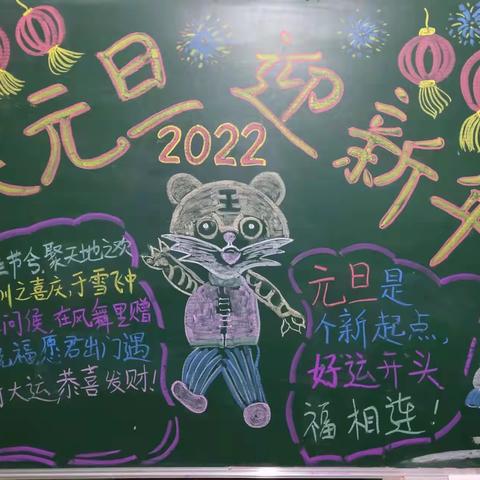 元旦迎新
2022
王
节令,聚天地之欢
之喜庆,于雪飞中
问候,在风舞里赠
祝福愿君出门遇
大运,恭喜发财!
元旦是
个新起点,
好运开头
福相连!